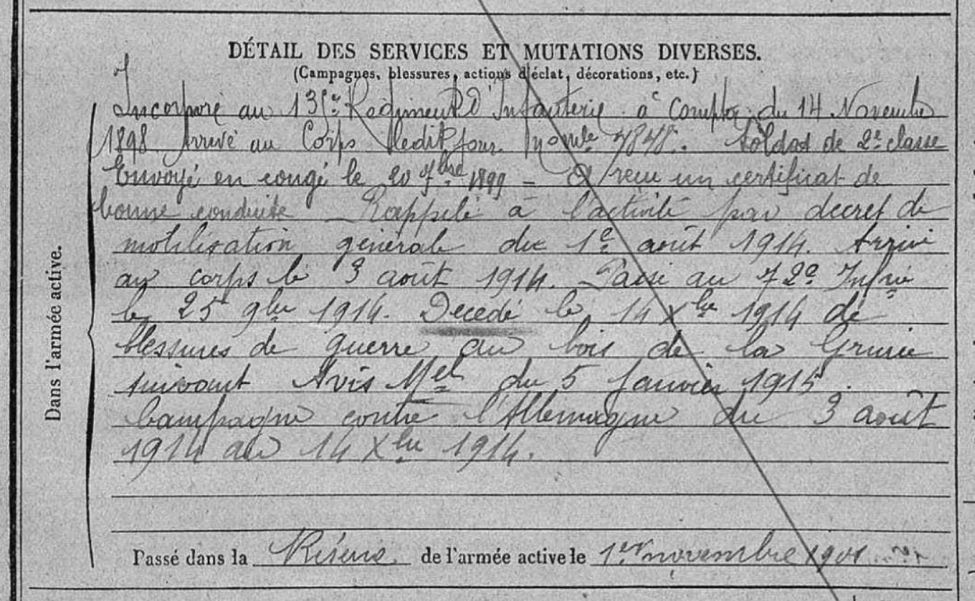 DÉTAIL DES SERVICES ET MUTATIONS DIVERSES.
(Campagnes, blessures, actions d'éclat, décorations, etc.)
Incorporé au Régiment d'Infanterie à compter du 14 Novembre
1898 Arrivé au Corps ledit jour 7848. Soldat de 2e classe
Envoyé en congé le 20 7bre 1899 = A reçu un certificat de
bonne conduite Rappelé à l'activité par decret de
mobilisation générale du 1er août 1914. Arrivé
au corps le 3 août 1914. Passé au 72e Infrie
le 25 9bre 1914. Decedé le 14 Xbre 1914 de
blessures de guerre au bois de la Grurie
suivant Avis Mel du 5 Janvier 1915.
Campagne contre l'Allemagne du 3 août
1914 au 14 Xbre 1914.
Dans l'armée active.
Passé dans la Réserve de l'armée active le 1er novembre 1901